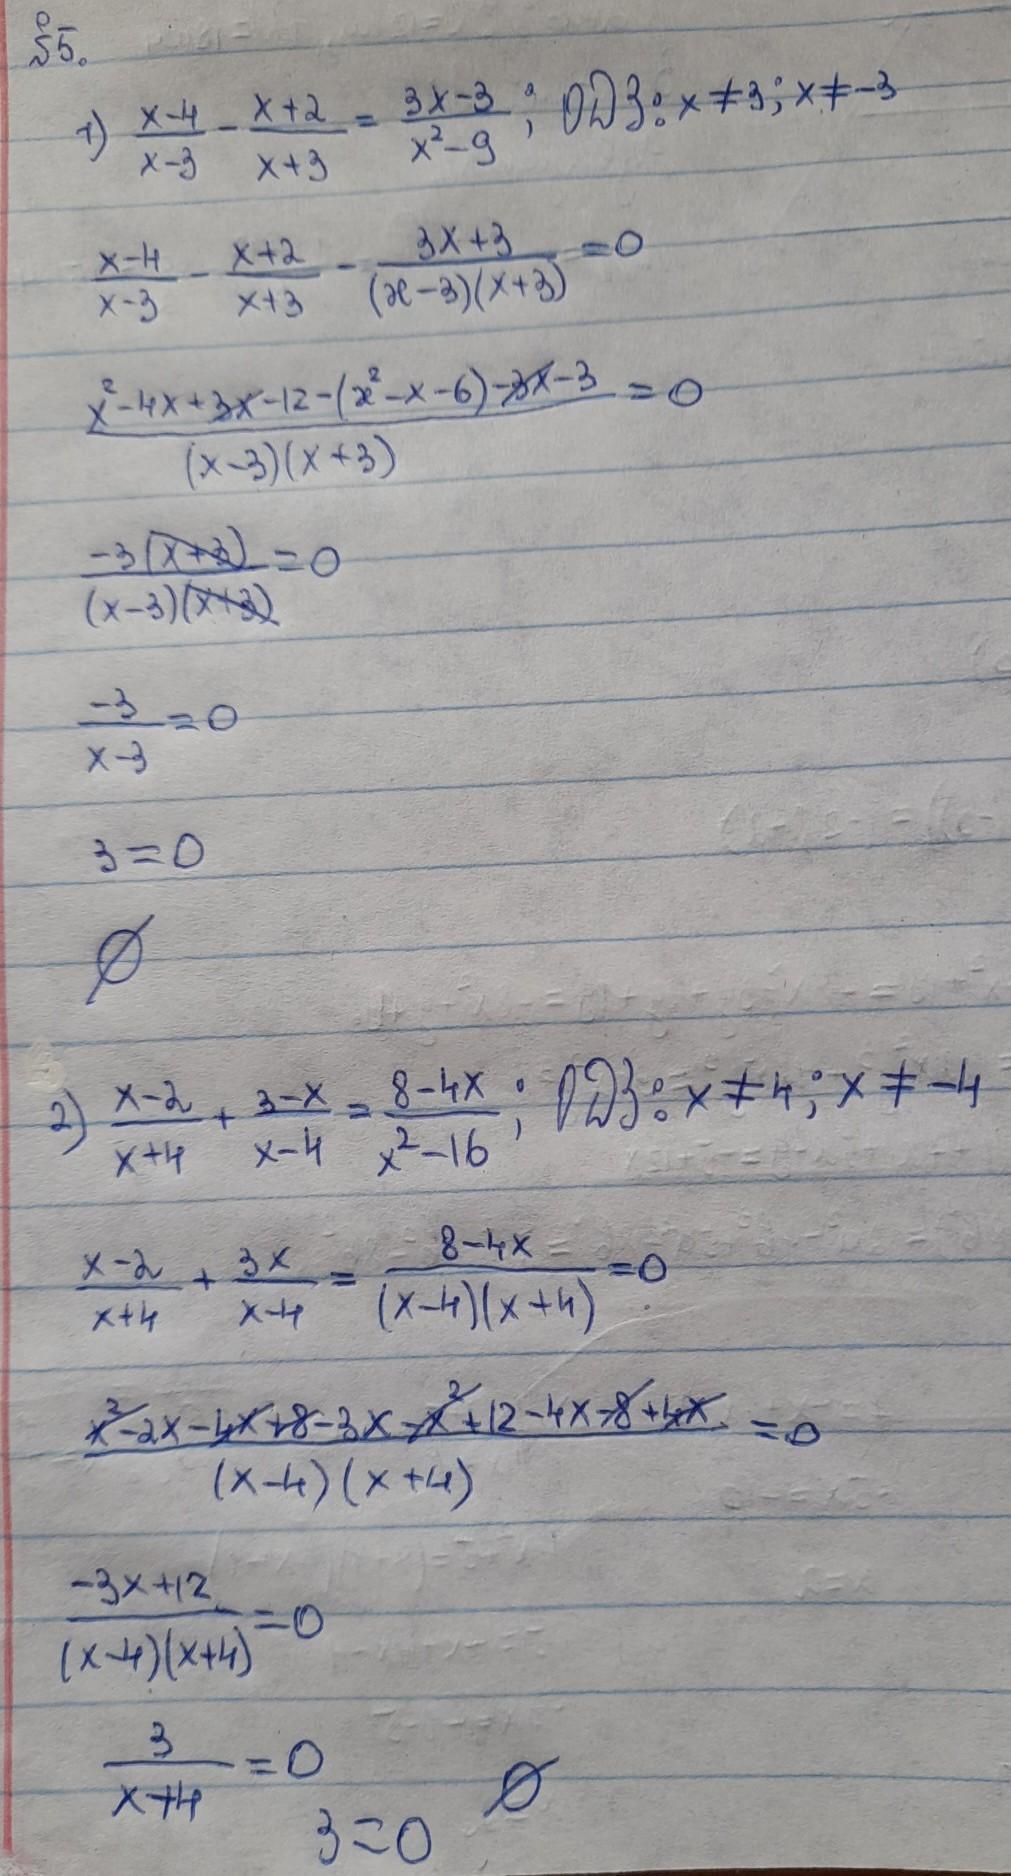 §5.
1) (x-4)/(x-3) - (x+2)/(x+3) = (3x-3)/(x²-9); ОДЗ: x≠3; x≠-3
(x-4)/(x-3) - (x+2)/(x+3) - (3x+3)/((x-3)(x+3)) = 0
(x²-4x+3x-12-(x²-x-6)-3x-3)/((x-3)(x+3)) = 0
(-3(x+3))/((x-3)(x+3)) = 0
(-3)/(x-3) = 0
3=0
∅
2) (x-2)/(x+4) + (3-x)/(x-4) = (8-4x)/(x²-16); ОДЗ: x≠4; x≠-4
(x-2)/(x+4) + (3x)/(x-4) = (8-4x)/((x-4)(x+4)) = 0
(x²-2x-4x+8-3x-x²+12-4x-8+4x)/((x-4)(x+4)) = 0
(-3x+12)/((x-4)(x+4)) = 0
3/(x+4) = 0
3=0 ∅